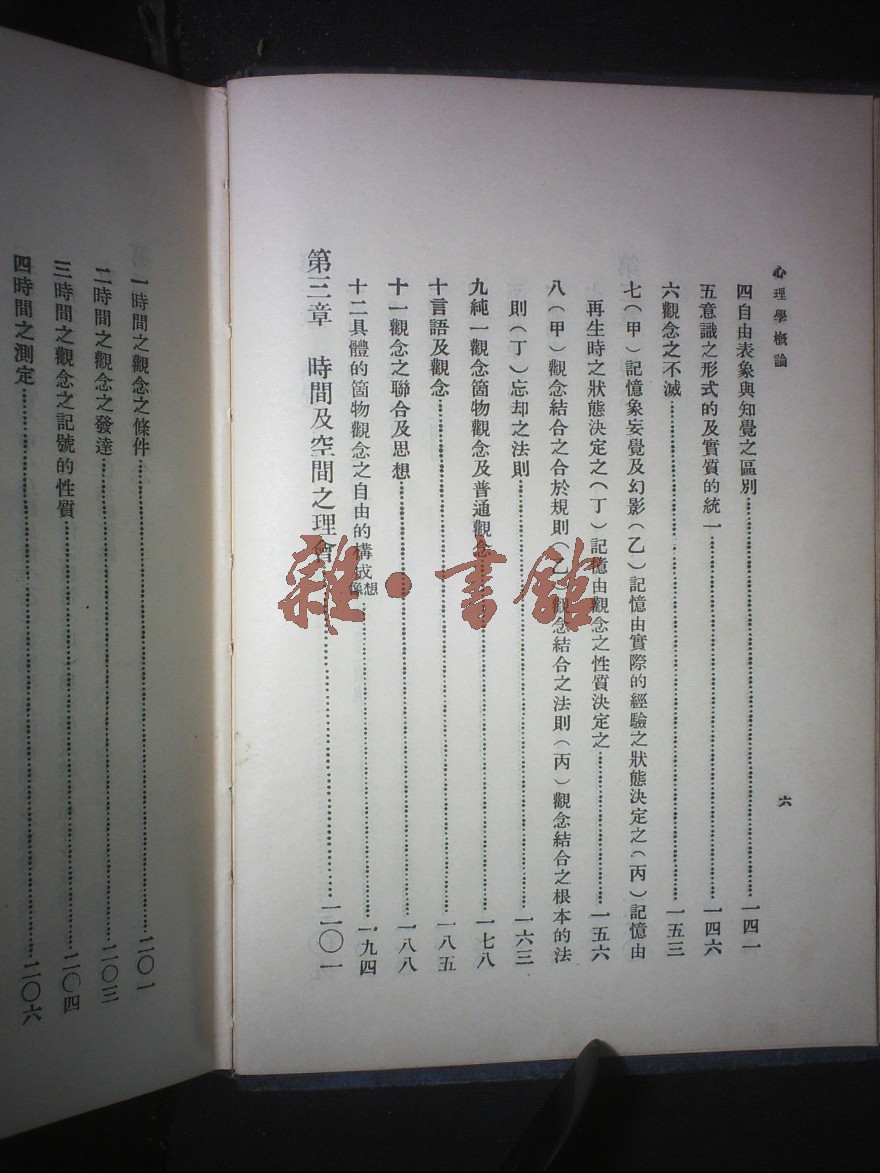 心理學概論
六
四自由表象與知覺之區別……一四一
五意識之形式的及實質的統一……一四六
六觀念之不滅……一五三
七(甲)記憶象妄覺及幻影(乙)記憶由實際的經驗之狀態決定之(丙)記憶由
再生時之狀態決定之(丁)記憶由觀念之性質決定之……一五六
八(甲)觀念結合之合於規則(乙)觀念結合之法則(丙)觀念結合之根本的法
則(丁)忘却之法則……一六三
九純一觀念箇物觀念及普通觀念……一七八
十言語及觀念……一八五
十一觀念之聯合及思想……一八八
十二具體的箇物觀念之自由的構成想像……一九四
第三章 時間及空間之理會……二〇一
一時間之觀念之條件……二〇一
二時間之觀念之發達……二〇三
三時間之觀念之記號的性質……二〇四
四時間之測定……二〇六
雜·書館